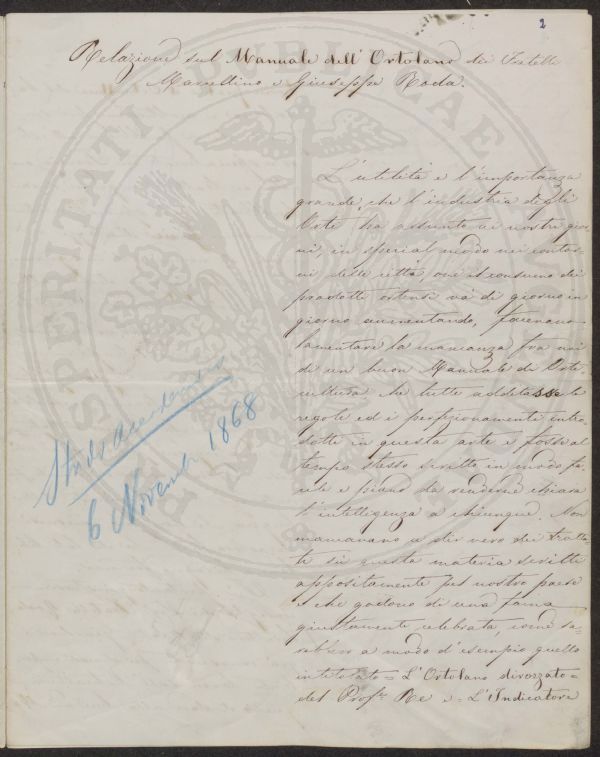 2
Relazione sul Manuale dell'Ortolano dei Fratelli
Marcellino e Giuseppe Roda.
L'utilità e l'importanza
grande, che l'industria degli
Orti ha assunto ai nostri gior-
ni, in special modo nei contor-
ni delle città, ove il consumo dei
prodotti ortensi và di giorno in
giorno aumentando, facevano
lamentare la mancanza fra noi
di un buon Manuale di Orti
cultura che tutte additasse le
regole ed i perfezionamenti intro
dotti in questa arte e fosse al
tempo stesso scritto in modo fa-
cile e piano da renderne chiara
l'intelligenza a chiunque. Non
mancavano a dir vero dei tratta
ti su questa materia scritti
appositamente pel nostro paese
e che godono di una fama
giustamente celebrata, come sa-
rebbero a modo d'esempio quello
intitolato = L'Ortolano dirozzato =
del Prof.re Re e = L'Indicatore
6 Novembre 1868
PROSPERITATI PUBLICAE